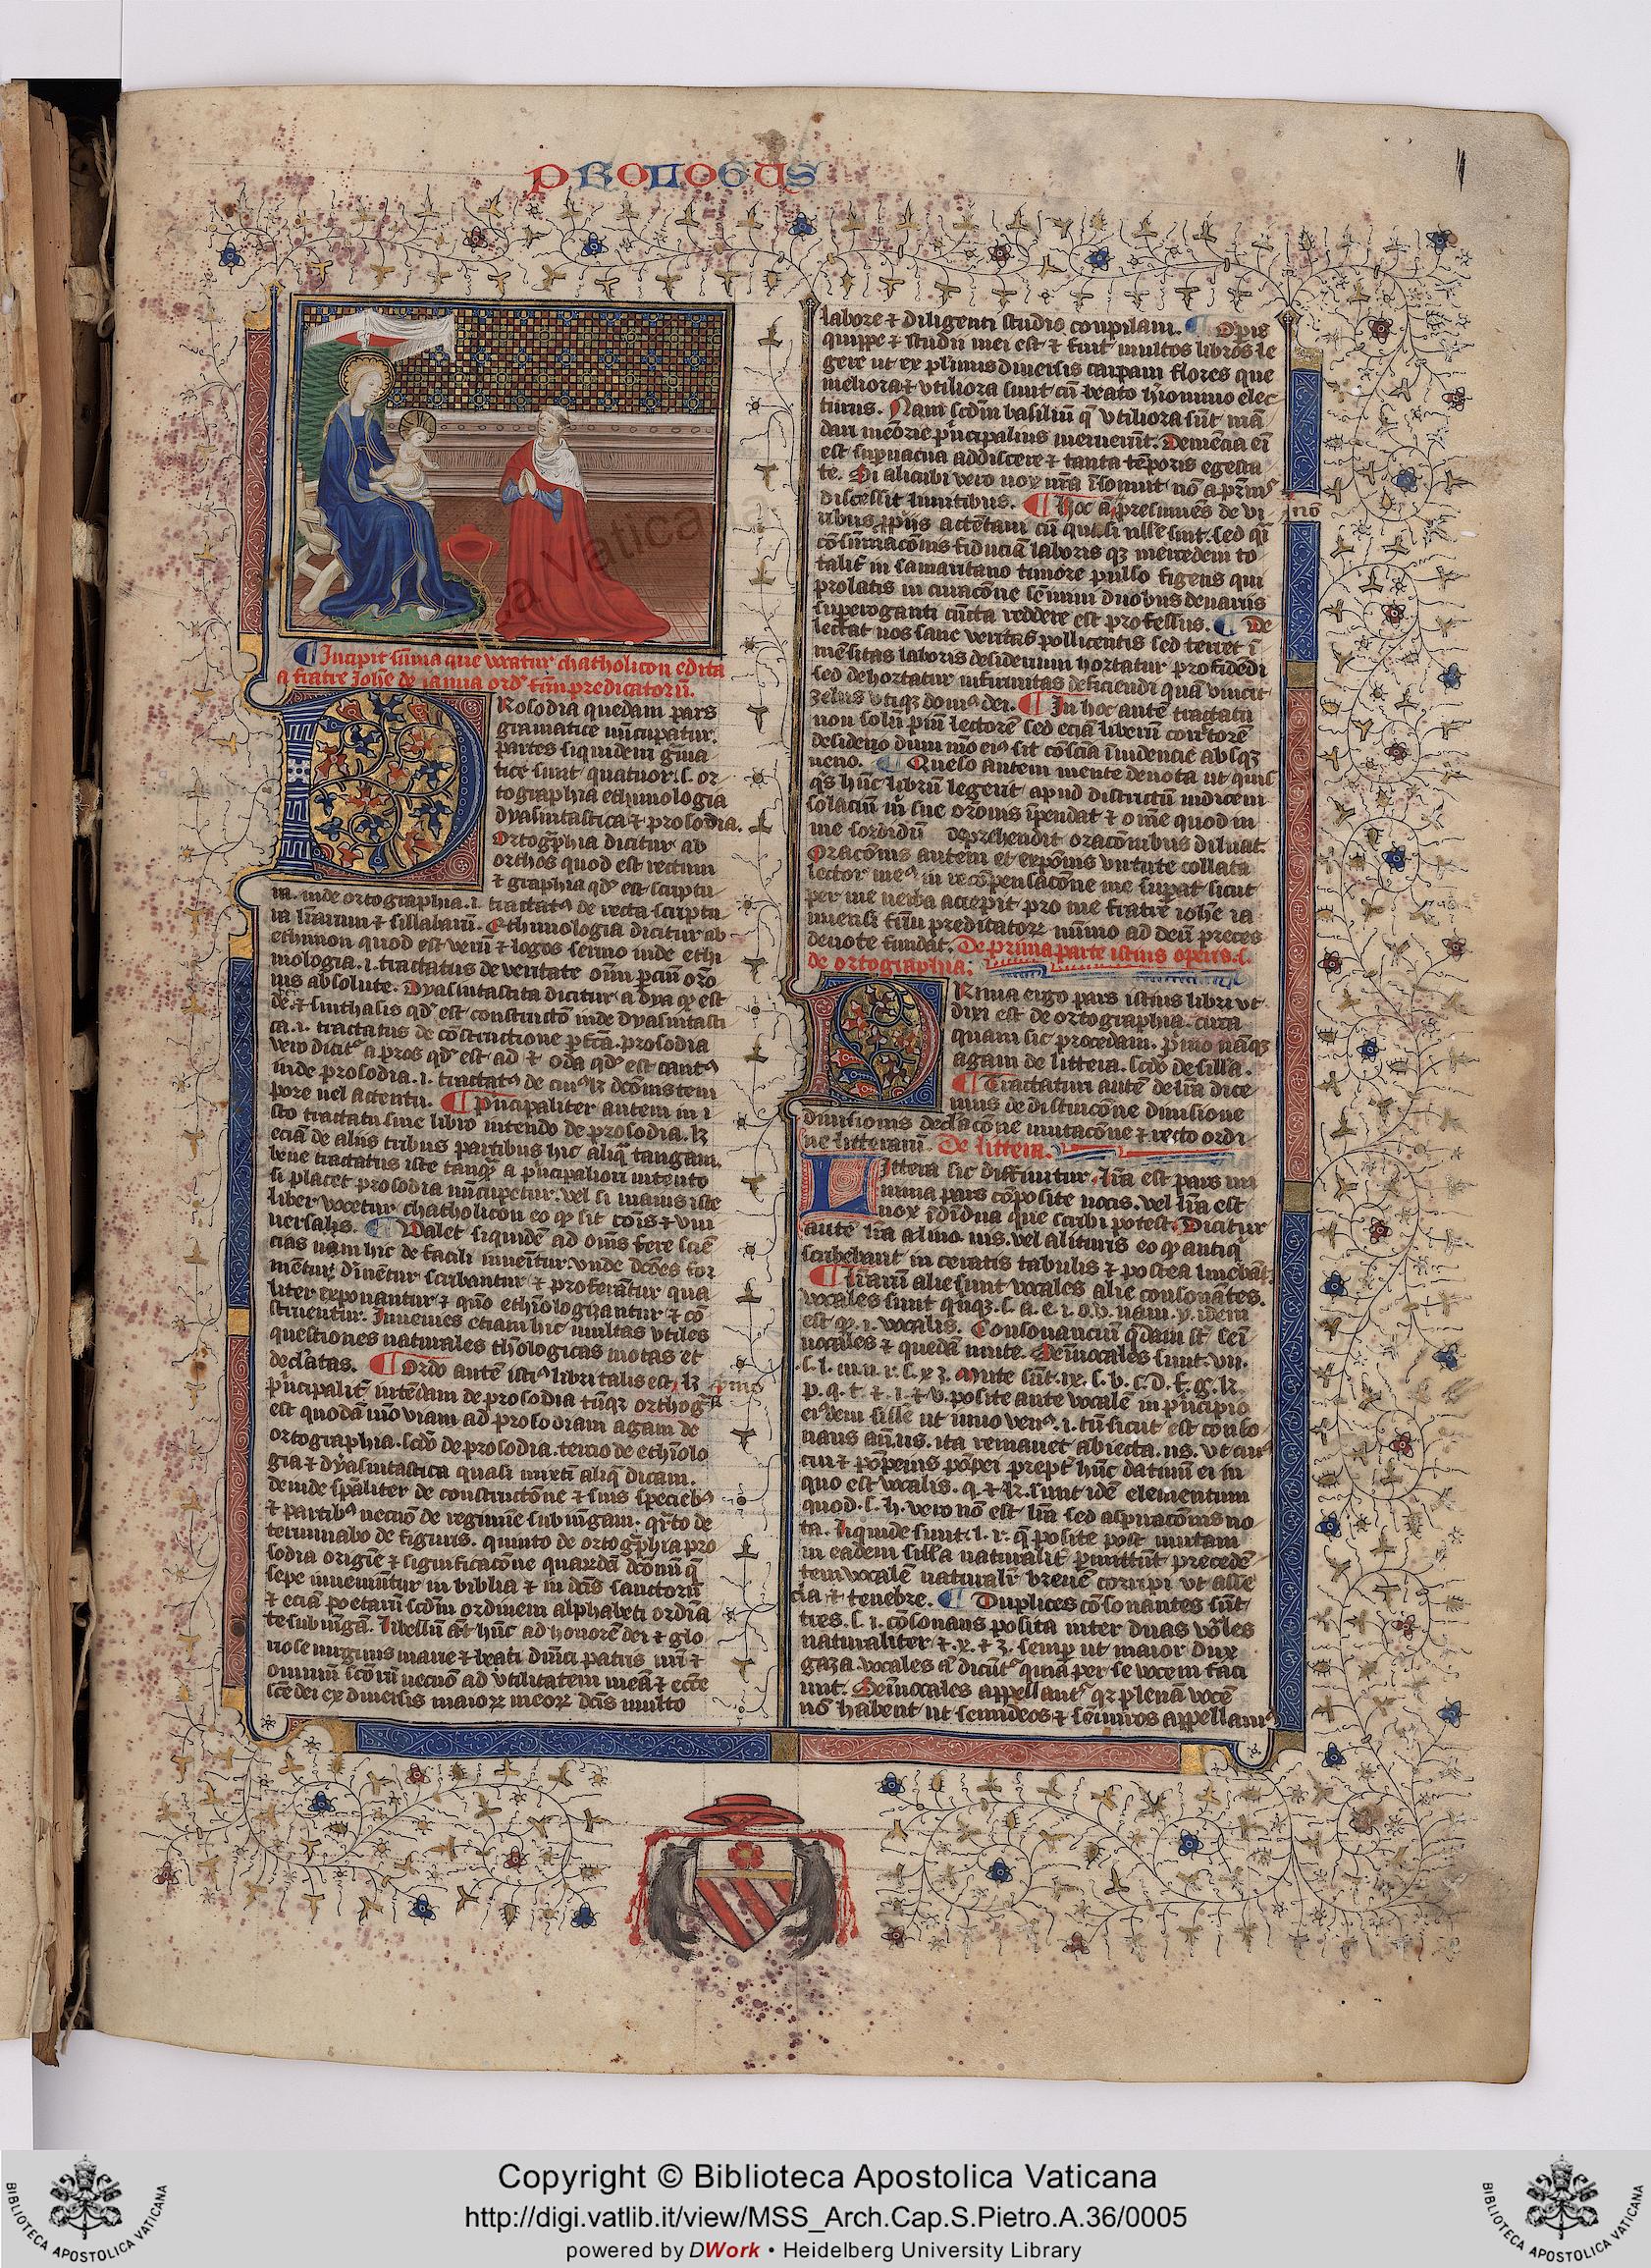 PROLOGUS
¶ Incipit sūma que vocatur chatholicon edita
a fratre Johē de ianua ord' frūm predicatorū.
Rosodia quedam pars
gramatice nūcupatur.
partes siquidem gūma
tice sunt quatuor .s. or
tographia ethimologia
dyasintastica ⁊ prosodia.
Ortogᵃphia dicitur ab
orthos quod est rectum
⁊ graphia qd' est scriptu
ra. inde ortographia .i. tractatꝰ de recta scriptu
ra lr̄arum ⁊ sillabarū. Ethimologia dicitur ab
ethimon quod est verū ⁊ logos sermo inde ethi
mologia .i. tractatus de veritate oīm parciū orō
nis absolute. Dyasintastica dicitur a dya qꝫ est
de. ⁊ sinthasis qd' est constructō inde dyasintasti
ca .i. tractatus de cōstructione prosodia
vero dicit̄ a pros qd' est ad ⁊ oda qd' est cantꝰ
inde prosodia .i. tractatꝰ de tem
pore vel accentu. ¶ Principaliter autem in i
sto tractatu sive libro intendo de prosodia. lꝫ
eciā de aliis tribus partibus hic aliqᵃ tangam.
bene tractatus iste tanqꝫ a principaliori intento
si placet prosodia nūcupetur. vel si mavis iste
liber vocetur chatholicon eo qꝫ sit cōis ⁊ uni
versalis. ¶ Valet siquidē ad om̄s fere sciē
cias nam hic de facili invenitur unde dcōēs for
mētur
liter exponantur ⁊ quō ethīologizantur ⁊ cō
struentur. Invenies etiam hic multas utiles
questiones naturales thologicas motas et
declatas. ¶ Ordo autē istiꝰ libri talis est. lꝫ
principalit̄ intēdam de prosodia
est quodā viam ad prosodiam agam de
ortographia. scdō de prosodia. tercio de ethiolo
gia ⁊ dyasintastica quasi mixti aliqᵃ dicam.
deinde spāliter de constructōne ⁊ suis speciebꝰ
⁊ partibꝰ necnō de regimine subiūgam. qᵃrto de
terminabo de figuris. quinto de ortogᵃphia pro
sodia origīe ⁊ significacōne quarūdā dcōnū qᵉ
sepe inveniūtur in biblia ⁊ in dcīs sanctorū
⁊ eciā poetarū scdm ordinem alphabeti ordīa
te subiūgā. Libellū hūc ad honorē dei ⁊ glo
riose virginis marie ⁊ beati dn̄ici patris nr̄i ⁊
omnium scōrū necnō ad utilitatem meā ⁊ eccē
scē dei ex diversis maioꝝ meoꝝ dcīs multo
labore ⁊ diligenti studio compilavi. ¶ Opis
quippe ⁊ studii mei est ⁊ fuit multos libros le
gere ut ex plimis diversis carpam flores que
meliora ⁊ utiliora sunt cū beato hīonimo elec
turus. Nam scdm basiliū qᵉ utiliora sūt mā
dari meōrie principalius meruerūt. Demēcia eī
est supvacua addiscere ⁊ tanta tēporis egesta
te. Si alicubi vero vox nrā īsonuit nō a prīnīs
discessit limitibus. ¶ Hoc ā presumēs de vi
ribus ꝓpriis acceptam cū quasi nllē sint. sed qī
cōsūmacōnis fiduciā laboris qꝫ mercedem to
talit̄ in samaritano timore pulso figens qui
prolatis in curacōne seminivi duobus denariis
superoganti cūcta reddere est professus. ¶ De
lectat nos sane veritas pollicentis sed terret ī
mēsitas laboris desiderium hortatur proficiedi
sed dehortatur infirmitas deficiendi quā vincit
zelus utiqꝫ domꝰ dei. ¶ In hoc autē tractatu
non solū pium lectorē sed eciā liberū corrtorē
desidero dum mo eiꝰ sit cōscia īvidencie absqꝫ
veneno. ¶ Queso autem mente devota ut quilꝫ
qᵒs hūc librū legerit apud districtū iudicem
solaciū mꝫ sue orōnis īpendat ⁊ omne quod in
me sordidū deprehendit oracōnibus diluat.
Oracōnis autem et exponis virtute collata
lector meꝰ in recōpensacōne me supat sicut
per me verba accepit pro me fratrē iohē ia
nuensi frūm predicatoꝝ nīmo ad deū preces
devote fundat. De prima parte istius operis .s.
de ortographia.
Rima ergo pars istius libri ut
dixi est de ortographia. circa
quam sic procedam. primo nāqꝫ
agam de littera. scdō de silla.
¶ Tractaturi autē de lrā dice
mus de distincōne divisione
divisionis declacōne mutacōne ⁊ recto ordi
ne litterarū. De littera.
Ittera sic diffinitur. lrā est pars mi
nima pars cōposite vocis. vel lrā est
vox īdīdua que scribi potest. Dicitur
autē lrā a lino. nis. vel a lituris eo qꝫ antiqī
scribebant in ceratis tabulis ⁊ postea linebāt.
¶ Lrārū alie sunt vocales alie consonātes.
vocales sunt quīqꝫ .s. a. e. i. o. v. nam y. idem
est qꝫ .i. vocalis. Consonanciū qᵉdam sīt semi
vocales ⁊ quedā mute. Semivocales sunt .vii.
.s. l. m. n. r. s. x z. Mute sūt .ix. s. b. c. d. f. g. k.
p. q. t. ⁊ .i. ⁊ v. posite ante vocalē in principio
eiꝰdem sille ut iuno venꝰ .i. tū sicut est conso
nans
cui ⁊ pōpeius pōpei prept' hūc datiuū ei in
quo est vocalis. q. ⁊ k. sunt idē elementum
quod .s. h. vero nō est lrā sed aspiracōnis no
ta. Liquide sunt .l. r. qᵉ posite post mutam
in eadem silla naturalit̄ pmittūt precedē
tem vocalē naturalit̄ brevē corripi ut assē
cla ⁊ tenebre. ¶ Duplices cōsonantes sūt
tres .s. i. cōsonans posita inter duas vōles
naturaliter ⁊ .x. ⁊ z. semp ut maior dux
gaza. vocales ā dicūt̄ quia per se vocem faci
unt. Semivocales appellant̄ qꝫ plenā vocē
nō habent ut semideos ⁊ semivos appellamꝰ
Copyright © Biblioteca Apostolica Vaticana
http://digi.vatlib.it/view/MSS_Arch.Cap.S.Pietro.A.36/0005
powered by DWork • Heidelberg University Library
BIBLIOTECA APOSTOLICA VATICANA
BIBLIOTECA APOSTOLICA VATICANA